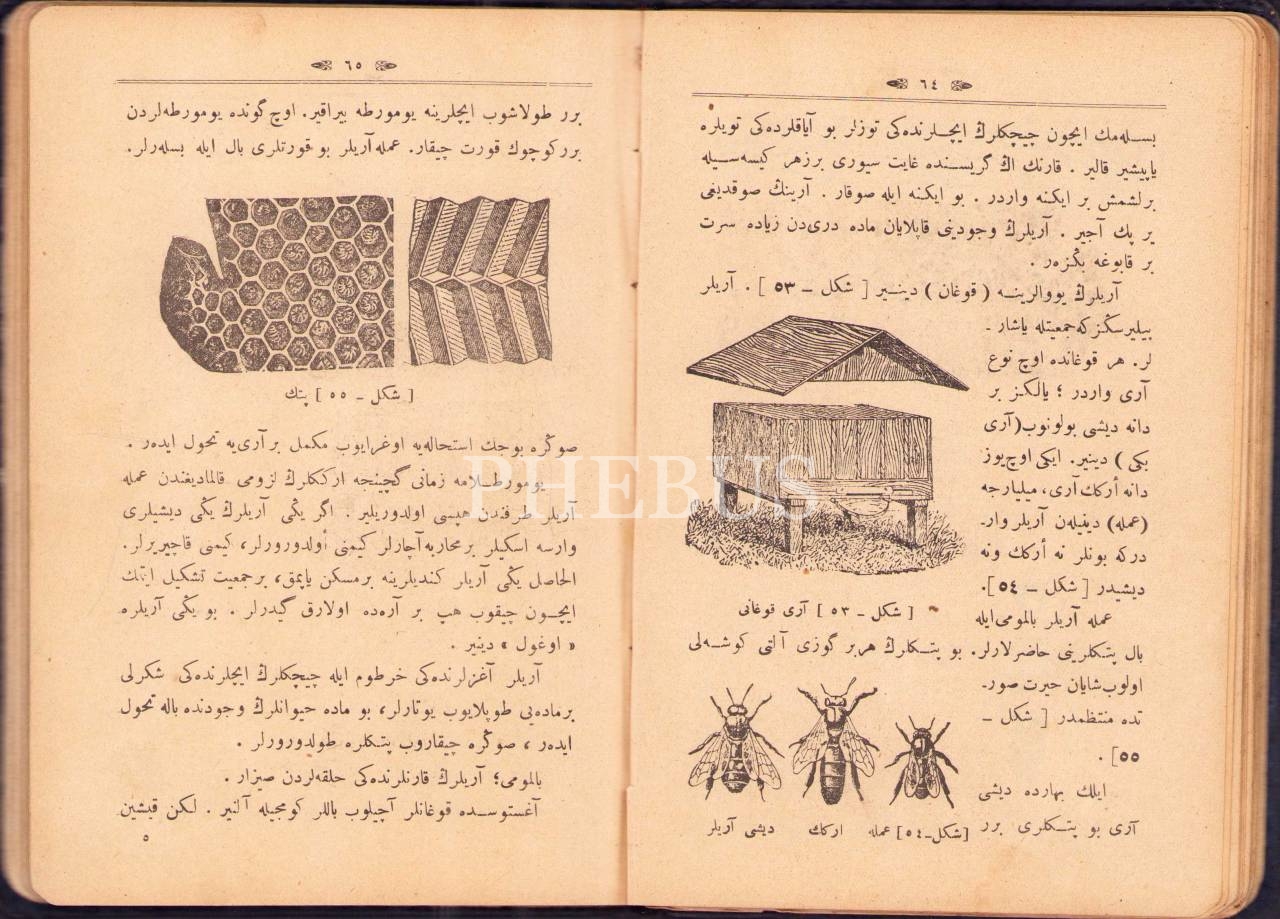 ٦٤
بسله‌مك ایچون چیچكلرڭ ایچلرنده‌كی توزلر بو آیاقلرده‌كی تویلره
یاپیشیر قالیر . قارنك اڭ گریسنده غایت سیوری برزهر كیسه‌سیله
برلشمش بر ایكنه واردر . بو ایكنه ایله صوقار . آرینڭ صوقدیغی
یر پك آجیر . آریلرڭ وجودینی قاپلایان ماده دری‌دن زیاده سرت
بر قابوغه بڭزەر .
آریلرڭ یووالرینه ( قوغان ) دینیر [ شكل ـ ٥٣ ] . آریلر
بیلیرسڭزكه جمعیتله یاشار ـ
لر. هر قوغانده اوچ نوع
آری واردر ؛ یالكز بر
دانه دیشی بولونوب (آری
بكی ) دینیر. ایكی اوچ‌یوز
دانه أركك آری، میلیارجه
(عمله) دینیلەن آریلر وار ـ
دركه بونلر نه أركك ونه
دیشیدر [ شكل ـ ٥٤ ].
[ شكل ـ ٥٣ ] آری قوغانی
عمله آریلر بالمومی‌ایله
بال پتكلرینی حاضرلارلر. بو پتكلرڭ هربر گوزی آلتی كوشه‌لی
اولوب‌شایان حیرت صور ـ
تده منتظمدر [ شكل ـ
٥٥ ] .
ایلك بهارده دیشی
آری بو پتكلری برر
[شكل ـ ٥٤] عمله اركك دیشی آریلر
٦٥
برر طولاشوب ایچلرینه یومورطه بیراقیر. اوچ گونده یومورطه‌لردن
برركوچوك قورت چیقار. عمله آریلر بو قورتلری بال ایله بسله‌رلر.
[ شكل ـ ٥٥ ] پتك
صوڭره بوجك استحاله‌یه اوغرایوب مكمل برآری‌یه تحول ایدەر .
یومورطلامه زمانی گچینجه ارككلرڭ لزومی قالمادیغندن عمله
آریلر طرفندن هپسی اولدوریلیر . اگر یڭی آریلرڭ یڭی دیشیلری
وارسه اسكیلر بر محاربه آچارلر كیمنی أولدورورلر، كیمنی قاچیریرلر.
الحاصل یڭی آریلر كندیلرینه برمسكن یاپمق، برجمعیت تشكیل ایتمك
ایچون چیقوب هپ بر آرەده اولارق گیدرلر . بو یڭی آریلره
« اوغول » دینیر .
آریلر آغزلرنده‌كی خرطوم ایله چیچكلرڭ ایچلرنده‌كی شكرلی
برماده‌یی طوپلایوب یوتارلر، بو ماده حیوانلرڭ وجودنده باله تحول
ایدەر ، صوڭره چیقاروب پتكلره طولدورورلر .
بالمومی؛ آریلرڭ قارنلرنده‌كی حلقه‌لردن صیزار .
آغستوسده قوغانلر آچیلوب باللر كومجیله آلنیر . لكن قیشین
٥
PHEBUS